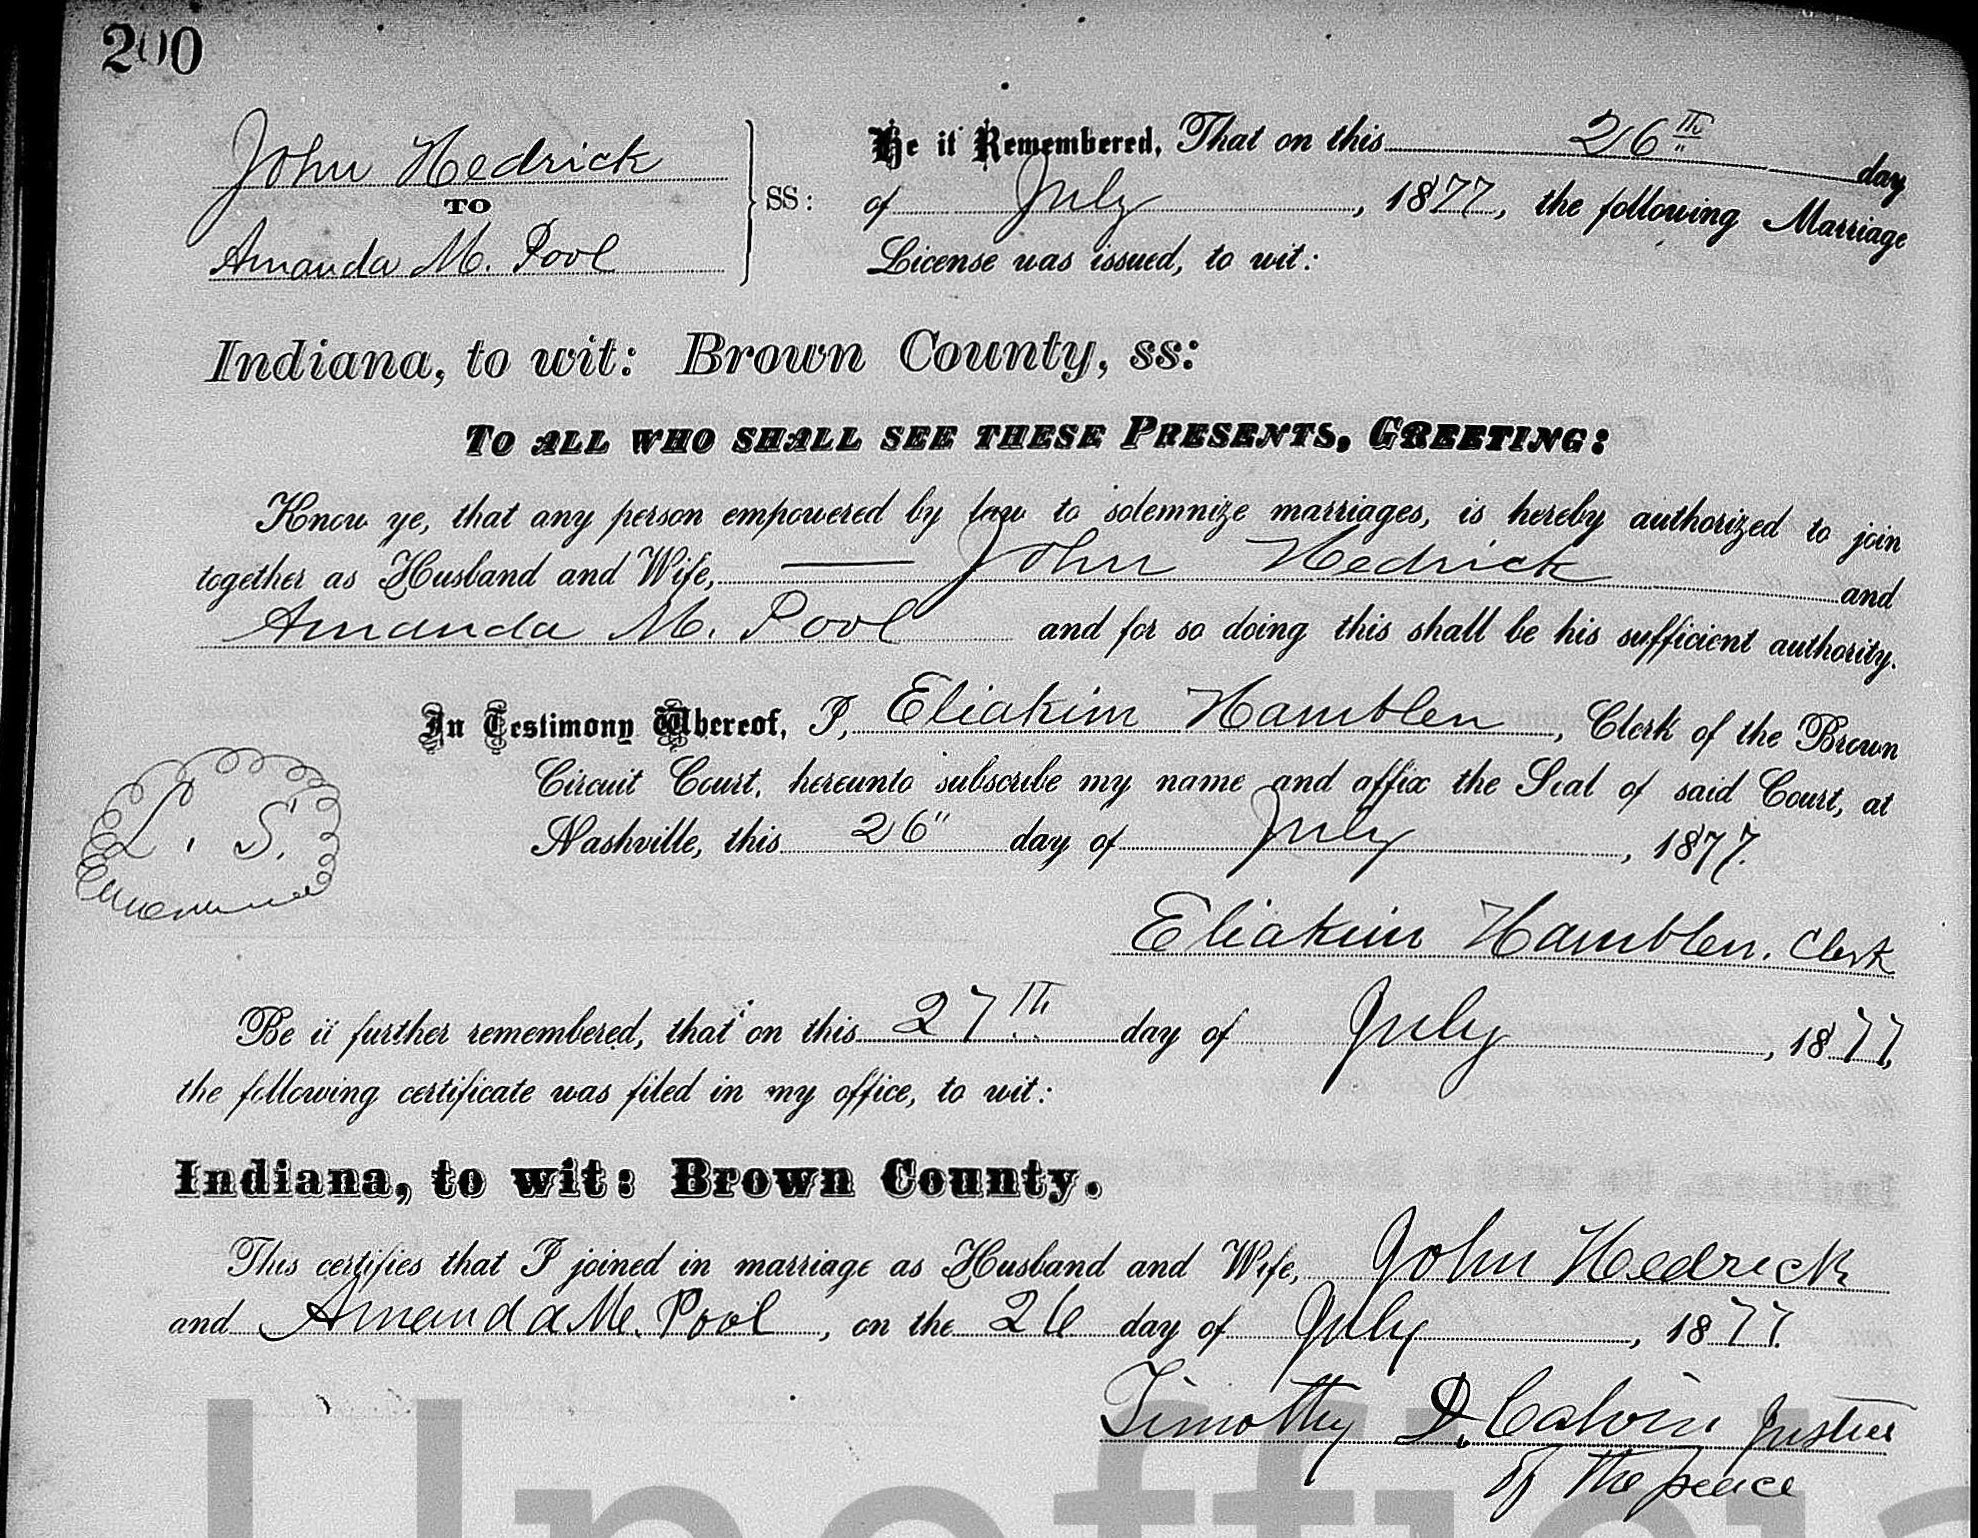 200
John Hedrick
TO
Amanda M. Pool
SS:
Be it Remembered, That on this 26th day
of July, 1877, the following Marriage
License was issued, to wit:
Indiana, to wit: Brown County, ss:
TO ALL WHO SHALL SEE THESE PRESENTS, GREETING:
Know ye, that any person empowered by law to solemnize marriages, is hereby authorized to join
together as Husband and Wife, John Hedrick and
Amanda M. Pool and for so doing this shall be his sufficient authority.
In Testimony Whereof, I, Eliakim Hamblen, Clerk of the Brown
Circuit Court, hereunto subscribe my name and affix the Seal of said Court, at
Nashville, this 26" day of July, 1877.
L. S.
Eliakim Hamblen. Clerk
Be it further remembered, that on this 27th day of July, 1877,
the following certificate was filed in my office, to wit:
Indiana, to wit: Brown County.
This certifies that I joined in marriage as Husband and Wife, John Hedrick
and Amanda M. Pool, on the 26 day of July, 1877.
Timothy D. Calvin Justice
of the peace
Unofficia